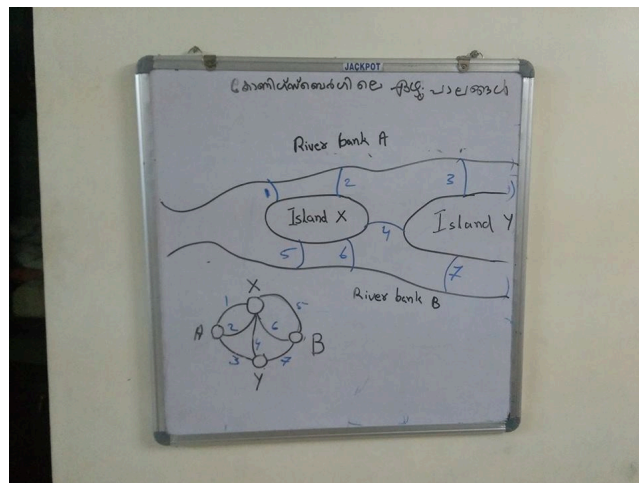 JACKPOT
കോണിഗ്സ്ബെർഗിലെ ഏഴു പാലങ്ങൾ
River bank A
1 2 3
Island X 4 Island Y
5 6 7
River bank B
X
1 5
A 2 6 B
3 4 7
Y